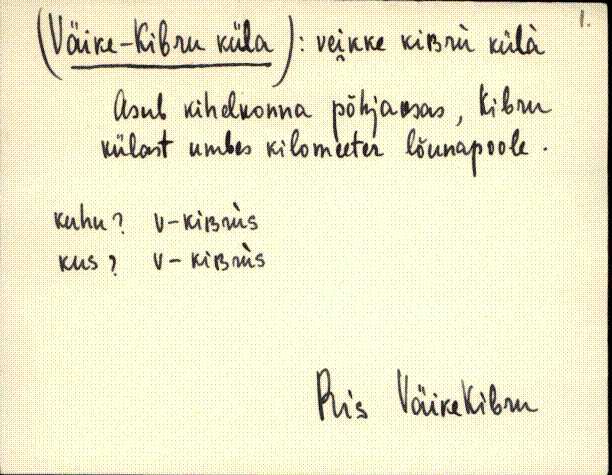 1.
(Väike-Kibru küla): vei̯kke kiʙrù külà
Asub kihelkonna põhjaosas, Kibru
külast umbes kilomeeter lõunapoole.
kuhu? v-kiʙrùs
kus? v-kiʙrùs
Pris VäikeKibru